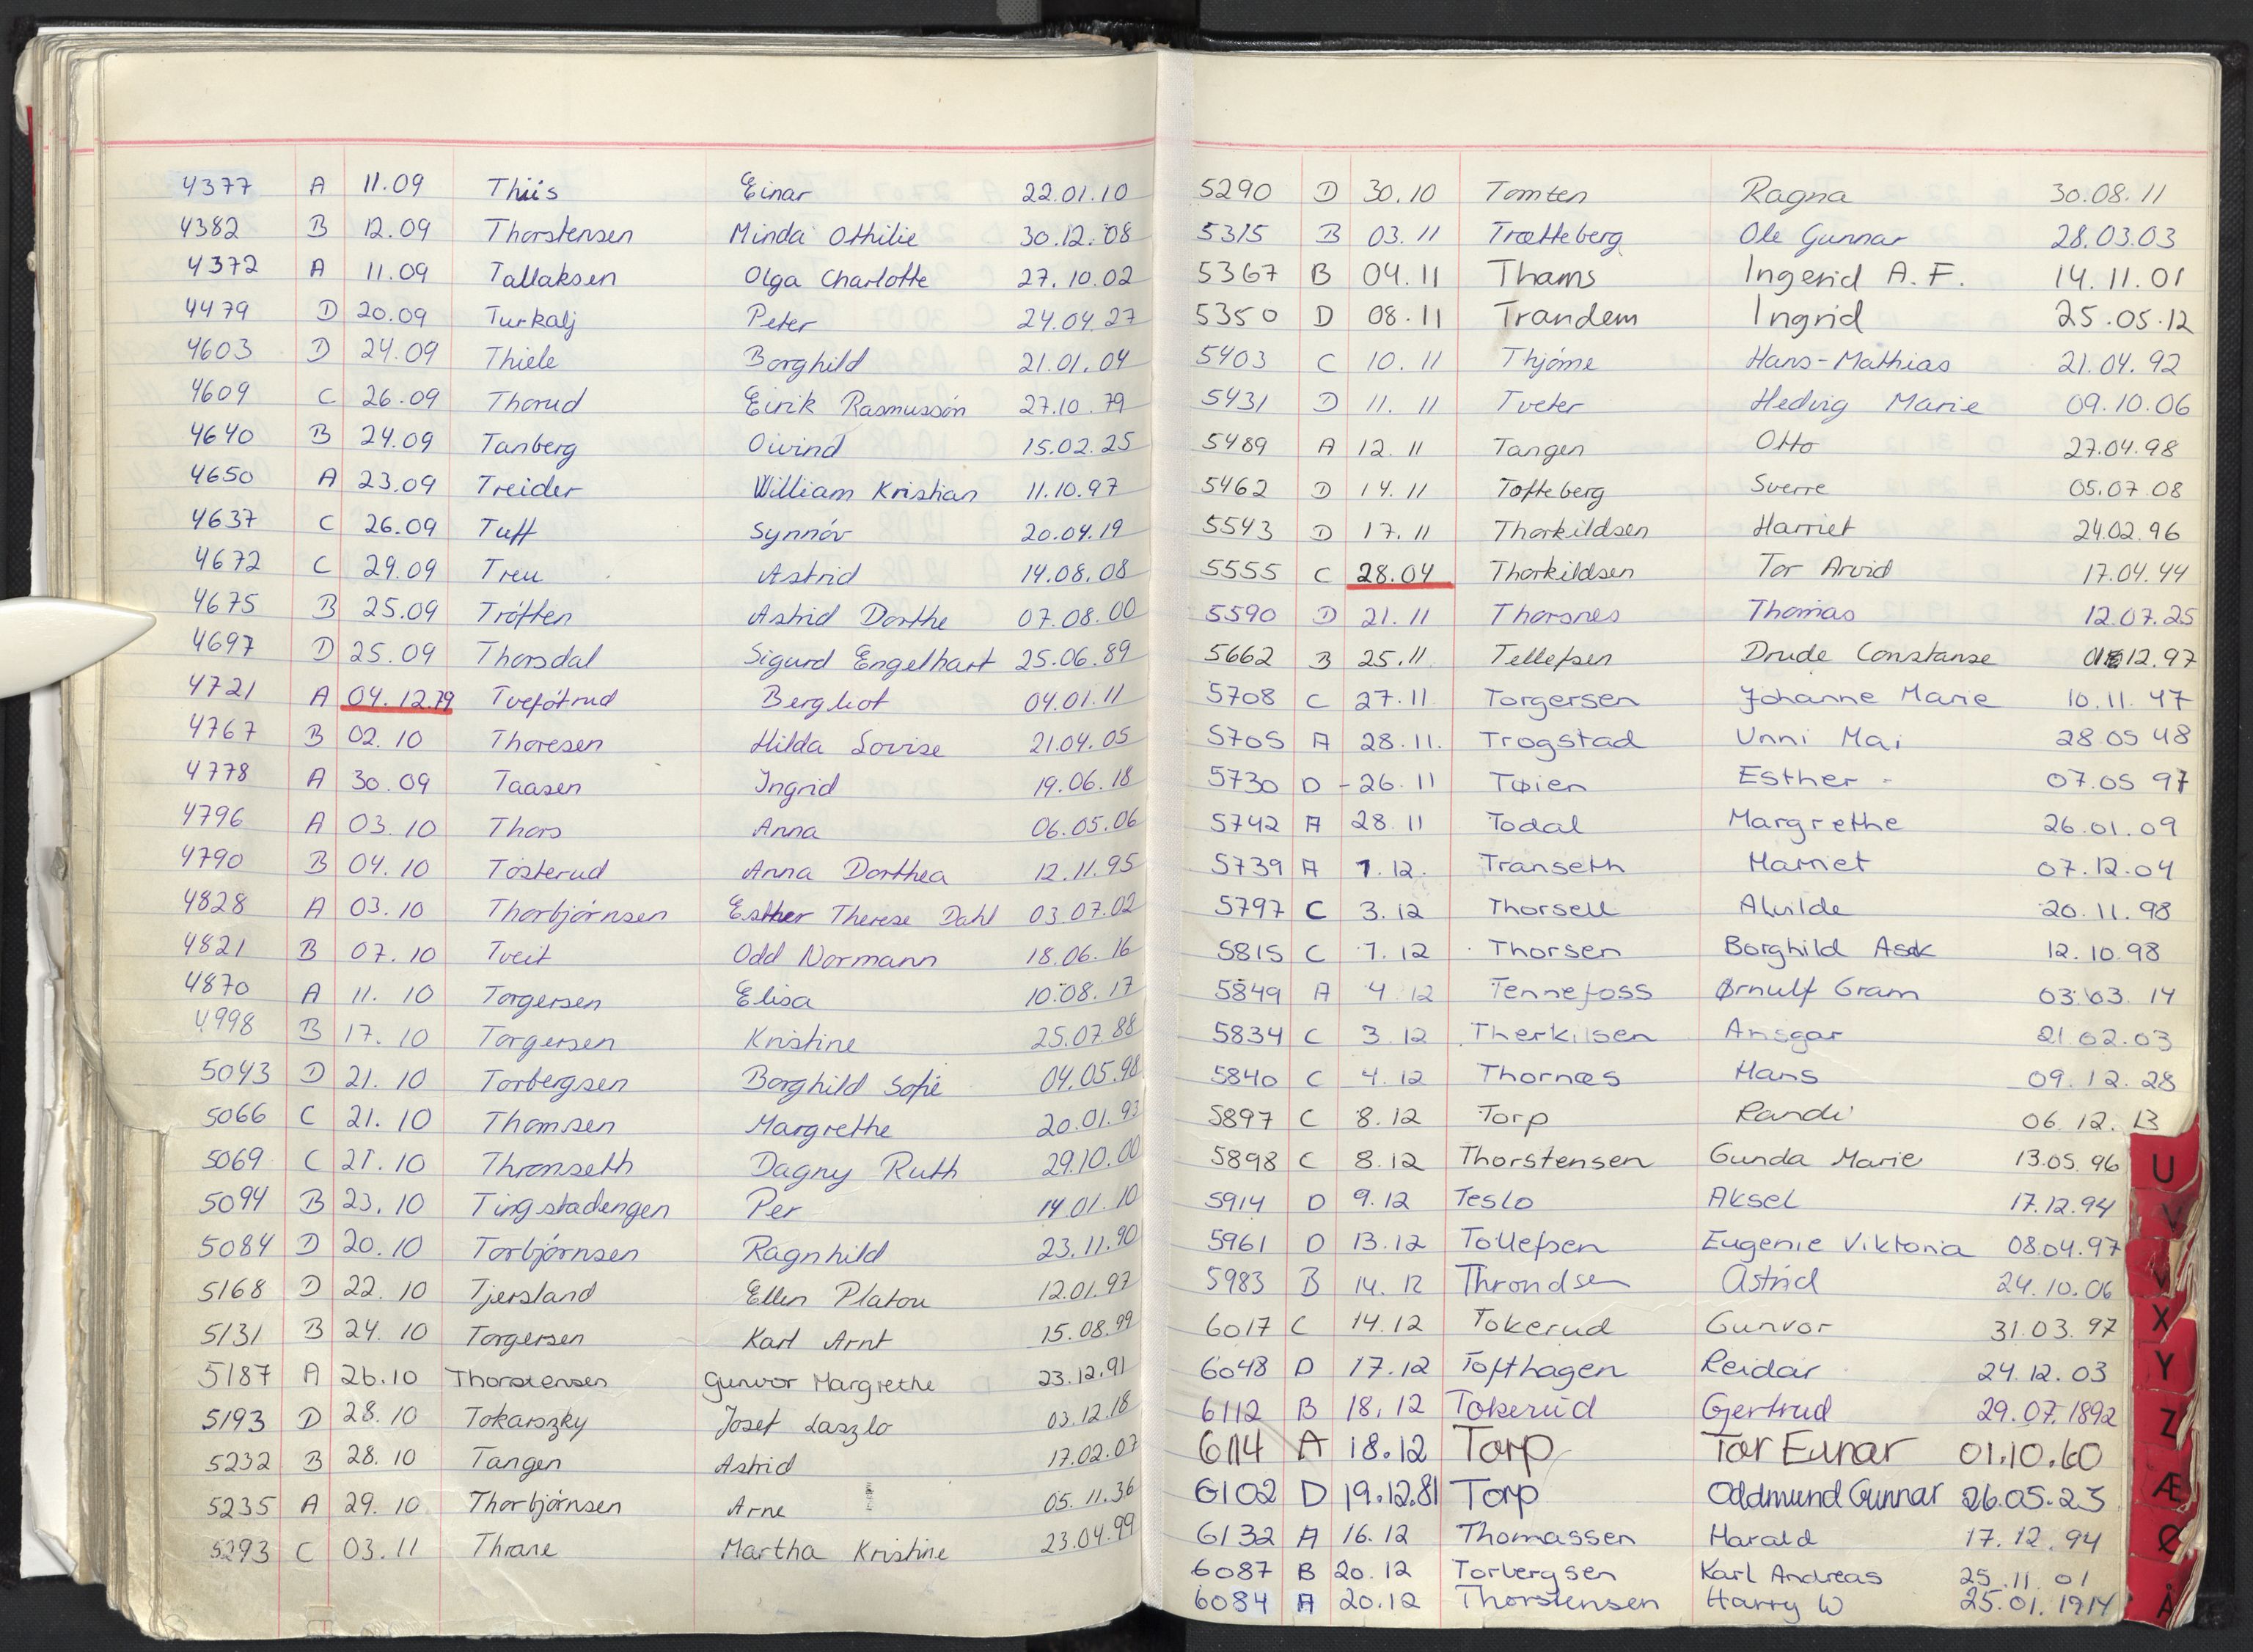 4377 A 11.09 Thiis Einar 22.01.10
4382 B 12.09 Thorstensen Minda Othilie 30.12.08
4372 A 11.09 Tallaksen Olga Charlotte 27.10.02
4479 D 20.09 Turkalj Peter 24.04.27
4603 D 24.09 Thiele Borghild 21.01.04
4609 C 26.09 Thorud Eirik Rasmussón 27.10.79
4640 B 24.09 Tanberg Oivind 15.02.25
4650 A 23.09 Treider William Kristian 11.10.97
4637 C 26.09 Tuff Synnóv 20.04.19
4672 C 29.09 Treu Astrid 14.08.08
4675 B 25.09 Tróften Astrid Dorthe 07.08.00
4697 D 25.09 Thorsdal Sigurd Engelhart 25.06.89
4721 A 04.12.79 Tvefótrud Bergliot 04.01.11
4767 B 02.10 Thoresen Hilda Lovise 21.04.05
4778 A 30.09 Taasen Ingrid 19.06.18
4796 A 03.10 Thors Anna 06.05.06
4790 B 04.10 Tosterud Anna Dorthea 12.11.95
4828 A 03.10 Thorbjórnsen Esther Therese Dahl 03.07.02
4821 B 07.10 Tveit Odd Normann 18.06.16
4870 A 11.10 Torgersen Elisa 10.08.17
4998 B 17.10 Torgersen Kristine 25.07.88
5043 D 21.10 Torbergsen Borghild Sofie 04.05.98
5066 C 21.10 Thomsen Margrethe 20.01.93
5069 C 21.10 Thronseth Dagny Ruth 29.10.00
5094 B 23.10 Tingstadengen Per 14.01.10
5084 D 20.10 Torbjórnsen Ragnhild 23.11.90
5168 D 22.10 Tjersland Ellen Platou 12.01.97
5131 B 24.10 Torgersen Karl Arnt 15.08.99
5187 A 26.10 Thorstensen Gunvor Margrethe 23.12.91
5193 D 28.10 Tokarszky Josef Laszlo 03.12.18
5232 B 28.10 Tangen Astrid 17.02.07
5235 A 29.10 Thorbjórnsen Arne 05.11.36
5293 C 03.11 Thrane Martha Kristine 23.04.99
5290 D 30.10 Tomten Ragna 30.08.11
5315 B 03.11 Trætteberg Ole Gunnar 28.03.03
5367 B 04.11 Thams Ingerid A.F. 14.11.01
5350 D 08.11 Trandem Ingrid 25.05.12
5403 C 10.11 Thjóme Hans-Mathias 21.04.92
5431 D 11.11 Tveter Hedvig Marie 09.10.06
5489 A 12.11 Tangen Otto 27.04.98
5462 D 14.11 Tofteberg Sverre 05.07.08
5543 D 17.11 Thorkildsen Harriet 24.02.96
5555 C 28.04 Thorkildsen Tor Arvid 17.04.44
5590 D 21.11 Thorsnes Thomas 12.07.25
5662 B 25.11 Tellefsen Drude Constanse 12.97
5708 C 27.11 Torgersen Johanne Marie 10.11.47
5705 A 28.11. Trogstad Unni Mai 28.05 48
5730 D - 26.11 Tøien Esther 07.05 97
5742 A 28.11 Todal Margrethe 26.01.09
5739 A 1.12. Transeth Harriet 07.12.04
5797 C 3.12 Thorsell Alvilde 20.11.98
5815 C 7.12 Thorsen Borghild Ask 12.10.98
5849 A 4.12 Tennefoss Ørnulf Gram 03.03.14
5834 C 3.12 Therkilsen Ansgar 21.02.03
5840 C 4.12 Thornæs Hans 09.12.28
5897 C 8.12 Torp Randi 06.12.13
5898 C 8.12 Thorstensen Gunda Marie 13.05.96
5914 D 9.12 Teslo Aksel 17.12.94
5961 D 13.12 Tollefsen Eugenie Viktoria 08.04.97
5983 B 14.12 Throndsen Astrid 24.10.06
6017 C 14.12 Tokerud Gunvor 31.03.97
6048 D 17.12 Tofthagen Reidar 24.12.03
6112 B 18.12 Tokerud Gjertrud 29.07.1892
6114 A 18.12 Torp Tor Eunar 01.10.60
6102 D 19.12.81 Torp Oddmund Gunnar 26.05.23
6132 A 16.12 Thomassen Harald 17.12.94
6087 B 20.12 Torbergsen Karl Andreas 25.11.01
6084 A 20.12 Thorstensen Harry W 25.01.1914
U
V
X
Y
Z
Æ
Ø
Å